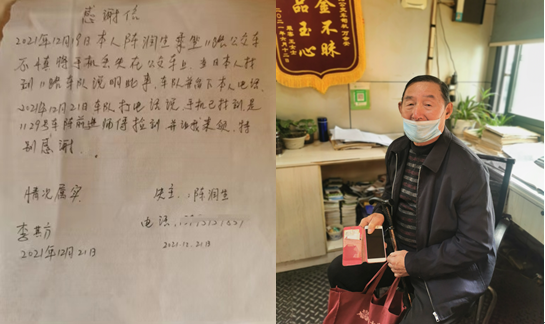 感谢信
2021年12月19日本人陈润生乘坐112路公交车
不慎将手机丢失在公交车上,当日本人找
到112路车队说明此事,车队并留下本人电话.
2021年12月21日车队打电话说,手机已找到是
1129号车陈前进师傅捡到并
特
别感谢.
情况属实
失主:陈润生
电话
2021年12月21日
2021.12.21日
金不昧
品玉心